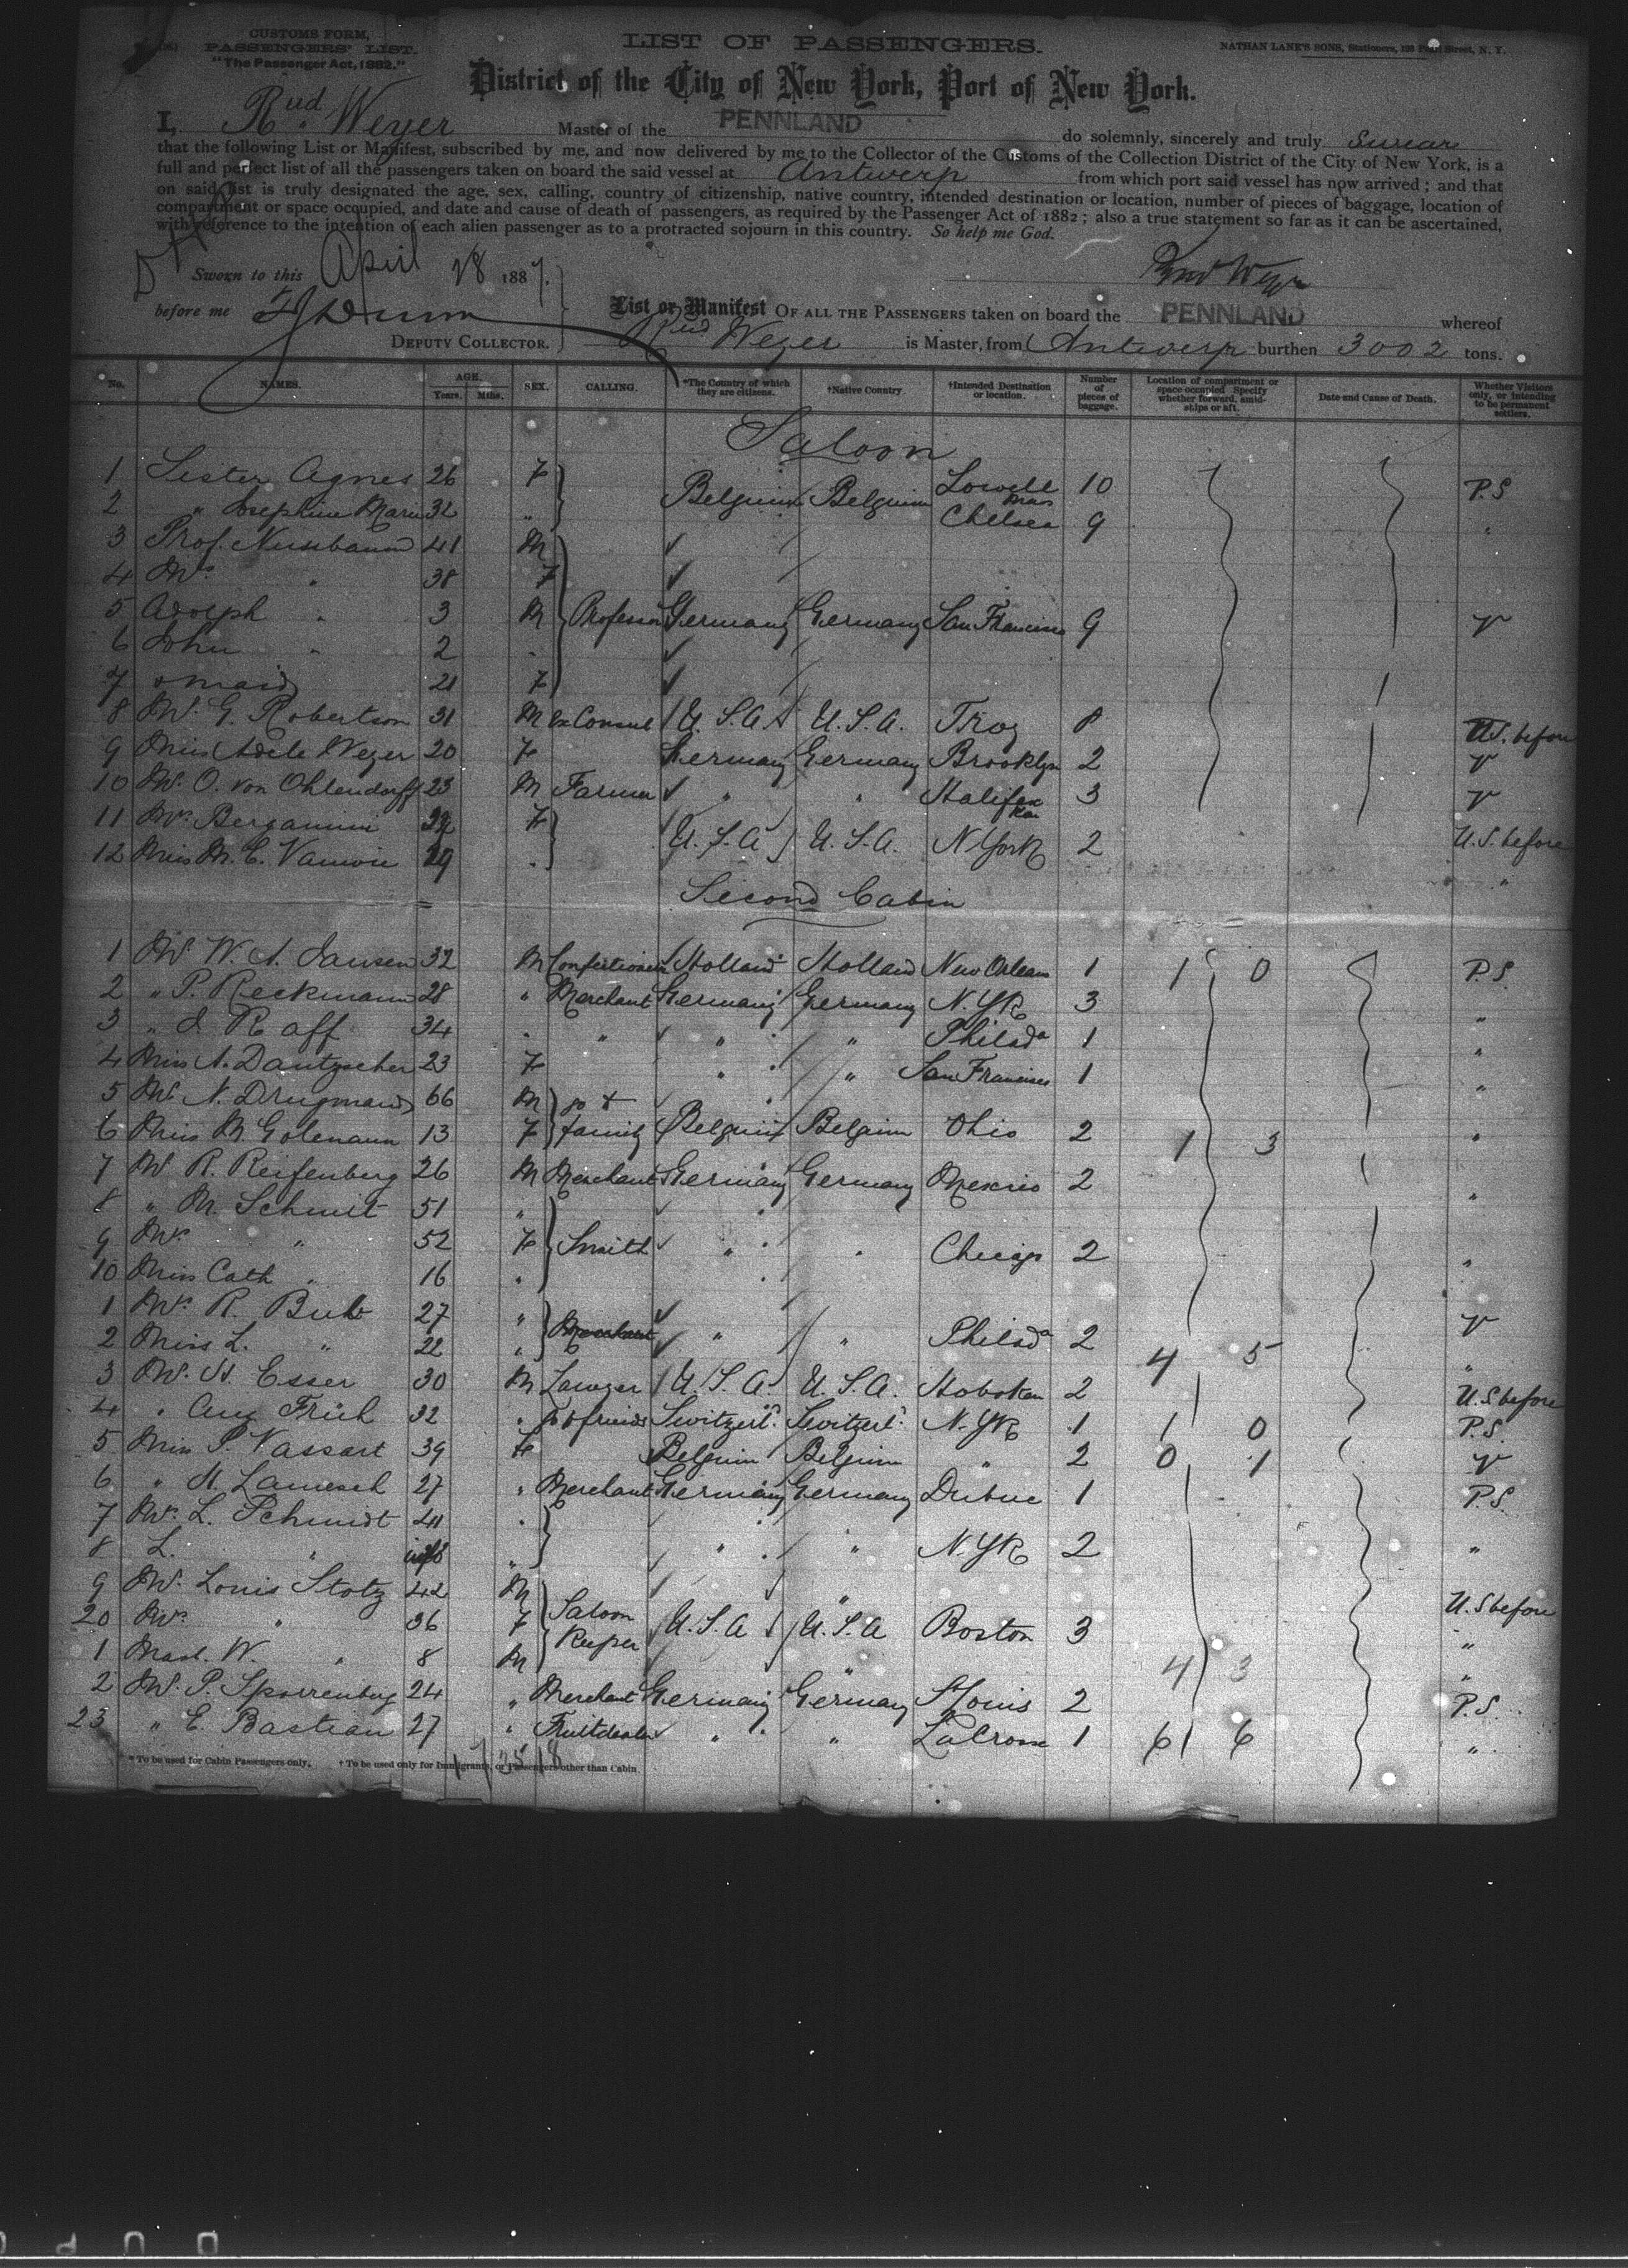 CUSTOMS FORM,
PASSENGERS' LIST.
"The Passenger Act, 1882."
LIST OF PASSENGERS.
NATHAN LANE'S SONS, Stationers, Pearl Street, N. Y.
District of the City of New York, Port of New York.
I, Rud. Weyer Master of the PENNLAND do solemnly, sincerely and truly Swear
that the following List or Manifest, subscribed by me, and now delivered by me to the Collector of the Customs of the Collection District of the City of New York, is a
full and perfect list of all the passengers taken on board the said vessel at Antwerp from which port said vessel has now arrived; and that
on said list is truly designated the age, sex, calling, country of citizenship, native country, intended destination or location, number of pieces of baggage, location of
compartment or space occupied, and date and cause of death of passengers, as required by the Passenger Act of 1882; also a true statement so far as it can be ascertained,
with reference to the intention of each alien passenger as to a protracted sojourn in this country. So help me God.
Sworn to this April 28 1887. Rud Weyer
before me
DEPUTY COLLECTOR.
List or Manifest OF ALL THE PASSENGERS taken on board the PENNLAND whereof
Rud Weyer is Master, from Antwerp burthen 3002 tons.
No. NAMES. AGE. Years. Mths. SEX. CALLING. *The Country of which they are citizens. †Native Country. †Intended Destination or location. Number of pieces of baggage. Location of compartment or space occupied. Specify whether forward, amidships or aft. Date and Cause of Death. Whether Visitors only, or intending to be permanent settlers.
Saloon
1 Sister Agnes 26 F Belgium Belgium Lowell Mass 10 P.S
2 " Josephine Marie 32 " Chelsea 9 "
3 Prof. Nussbaum 41 M
4 Mrs " 38 F
5 Adolph " 3 M Professor Germany Germany San Francisco 9 V
6 John " 2 "
7 & maid 21 F
8 Mr. G. Robertson 31 M ex Consul U.S.A. U.S.A. Troy 8 U.S. before
9 Miss Adele Weyer 20 F Germany Germany Brooklyn 2 V
10 Mr. O. von Ohlendorff 23 M Farmer " " Halifax 3 V
11 Mrs Bergamini F U.S.A U.S.A. N York 2 U.S. before
12 Miss M. E. 29 " "
Second Cabin
1 Mr W. A. Jansen 32 M Confectioner Holland Holland New Orleans 1 1 0 P.S.
2 " P. Reckmann 28 " Merchant Germany Germany N. Yk 3 "
3 " J. Raff 34 " " " " Philada 1 "
4 Miss A. Dantzscher 23 F " " San Francisco 1 "
5 Mr N. Drugmand 66 M go to
6 Miss M. Golemann 13 F family Belgium Belgium Ohio 2 1 3 "
7 Mr R. Reifenberg 26 M Merchant Germany Germany Mexico 2 "
8 " M. Schmit 51 "
9 Mrs " 52 F Smith " " Chicago 2 "
10 Miss Cath " 16 "
1 Mrs R. Bub 27 " V
2 Miss L. " 22 " Merchant " " Philada 2 4 5 "
3 Mr. H. Esser 30 M Lawyer U.S.A. U.S.A. Hoboken 2 U.S before
4 " Aug Früh 32 " to friends Switzerld. Switzerl. N. Yk 1 1 0 P.S.
5 Miss P. Vassart 39 F Belgium Belgium " 2 0 1 V
6 " H. Lamesch 27 " Merchant Germany Germany 1 P.S.
7 Mrs. L. Schmidt "
8 L. " inft " " " N. Yk 2 "
9 Mr. Louis Stotz 42 M " U.S before
20 Mrs " 36 F Saloon Keeper U.S.A U.S.A Boston 3 "
1 Mast. W. " 8 M " 4 3 "
2 Mr. P. Sporrenberg 24 " Merchant Germany Germany St Louis 2 P.S.
23 " E. Bastian 27 " Fruitdealer " " La Crosse 1 6 6 "
* To be used for Cabin Passengers only. † To be used only for Immigrants, or Passengers other than Cabin